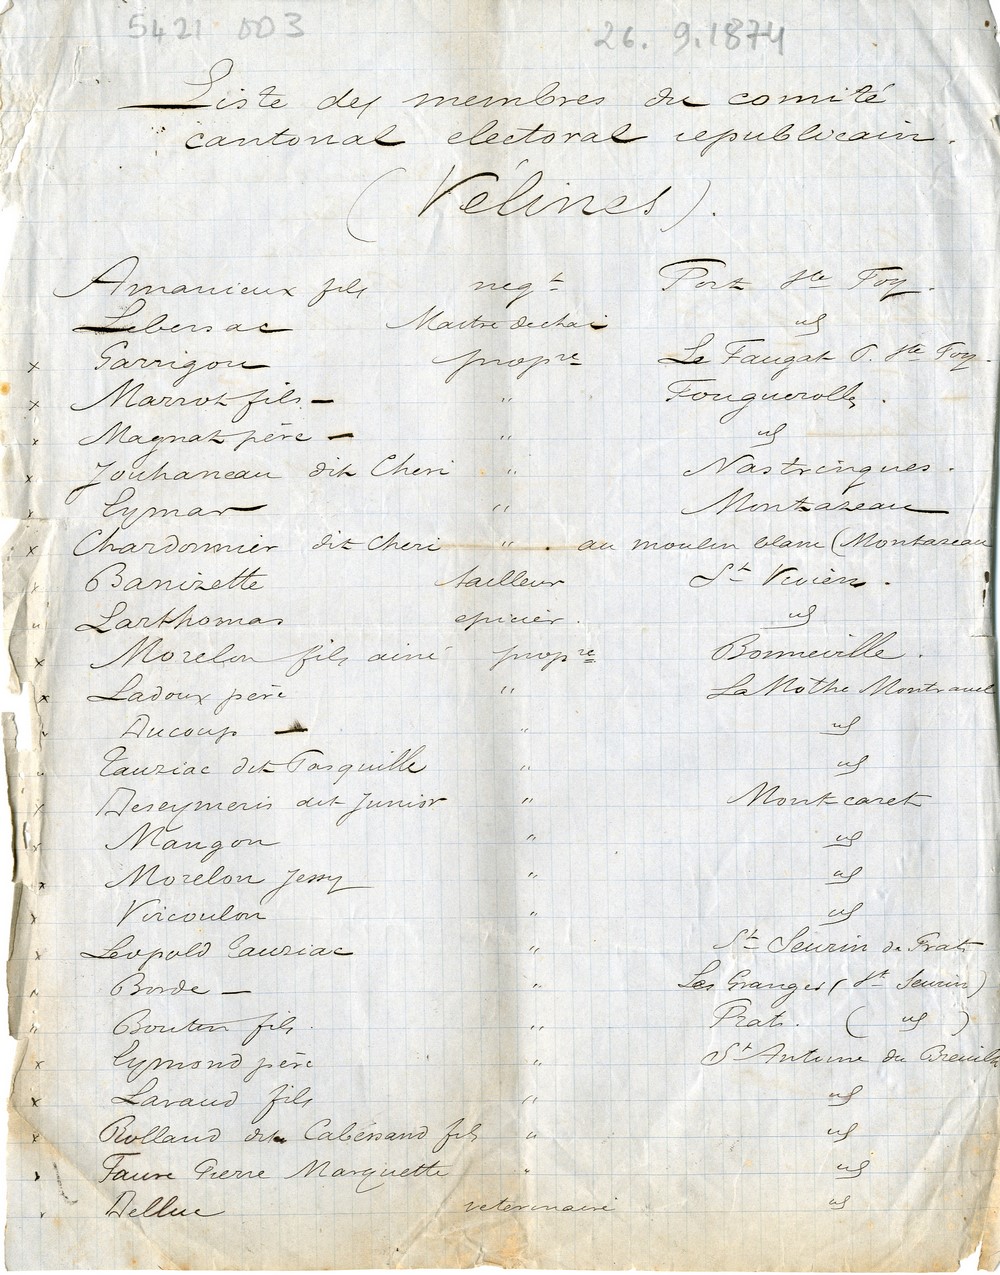 5421 003 26. 9. 1874
Liste des membres du comité
cantonal electoral republicain.
(Vélines).
Amanieux fils negt Port Ste Foy.
Lebersac Maitre de chai id
x Garrigou propre Le Faugat P. Ste Foy.
x Marrot fils — " Fouguerolles.
x Magnat père — " id
x Jouhaneau dit Cheri " Nastringues.
x Eymar " Montazeau
x Chardonnier dit Cheri " au moulin blanc (Montazeau
x Banizette tailleur St Vivien.
" Larthomas epicier. id
x Morelon fils ainé propre Bonneville.
x Ladoux père " La Mothe Montravel
Ducoup — " id
" Tauziac dit Pasquille " id
x Deseymeris dit Junior " Montcaret
x Mangon " id
x Morelon Jemy " id
x Vircoulon " id
x Leopold Tauziac " St Seurin de Prats
Borde — " Les Granges (St Seurin)
" Boutin fils. " Prats. (id)
x Eymond père " St Antoine du Breuilh
x Lavaud fils " id
x Rolland dit Cabersand fils " id
Faure Pierre Marquette " id
Delluc veterinaire id